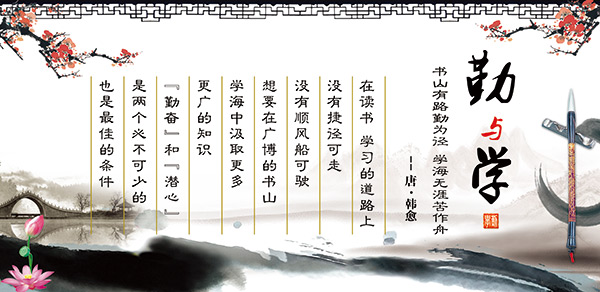 勤与学
书山有路勤为径 学海无涯苦作舟
--唐·韩愈
在读书 学习的道路上
没有捷径可走
没有顺风船可驶
想要在广博的书山
学海中汲取更多
更广的知识
『勤奋』和『潜心』
是两个必不可少的
也是最佳的条件